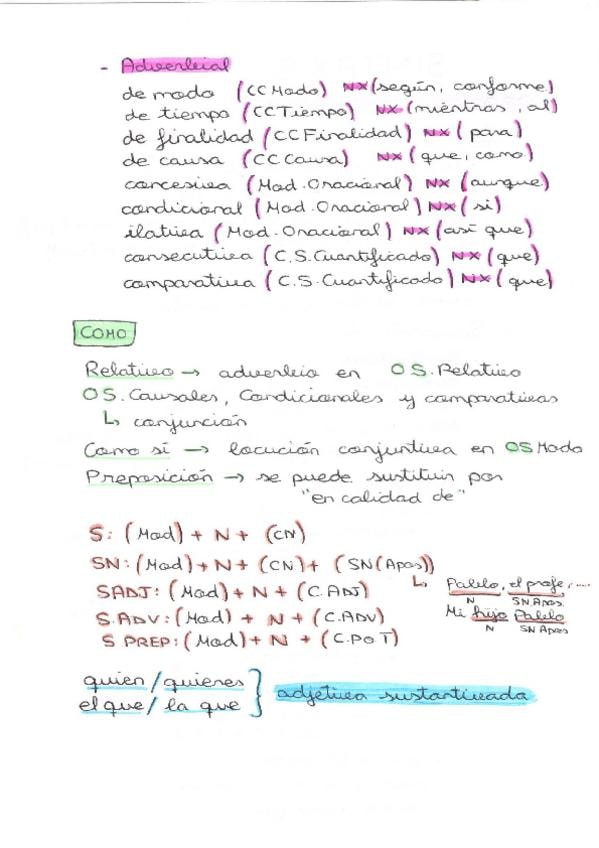 - Adverbial
de modo (CCModo) NX (según, conforme)
de tiempo (CCTiempo) NX (mientras, al)
de finalidad (CCFinalidad) NX (para)
de causa (CCCausa) NX (que, como)
concesiva (Mod. Oracional) NX (aunque)
condicional (Mod. Oracional) NX (si)
ilativa (Mod. Oracional) NX (así que)
consecutiva (C.S.Cuantificado) NX (que)
comparativa (C.S.Cuantificado) NX (que)
COMO
Relativo → adverbio en OS.Relativo
OS.Causales, Condicionales y comparativas
↳ conjunción
Como si → locución conjuntiva en OSModo
Preposición → se puede sustituir por
"en calidad de"
S: (Mod) + N + (CN)
SN: (Mod) + N + (CN) + (SN(Apos))
SADJ: (Mod) + N + (C.ADJ)
↳ Pablo, el profe, ....
N SN Apos.
S.ADV: (Mod) + N + (C.ADV)
Mi hijo Pablo
N SN Apos
S.PREP: (Mod) + N + (C.POT)
quien / quienes
el que / la que } adjetiva sustantivada